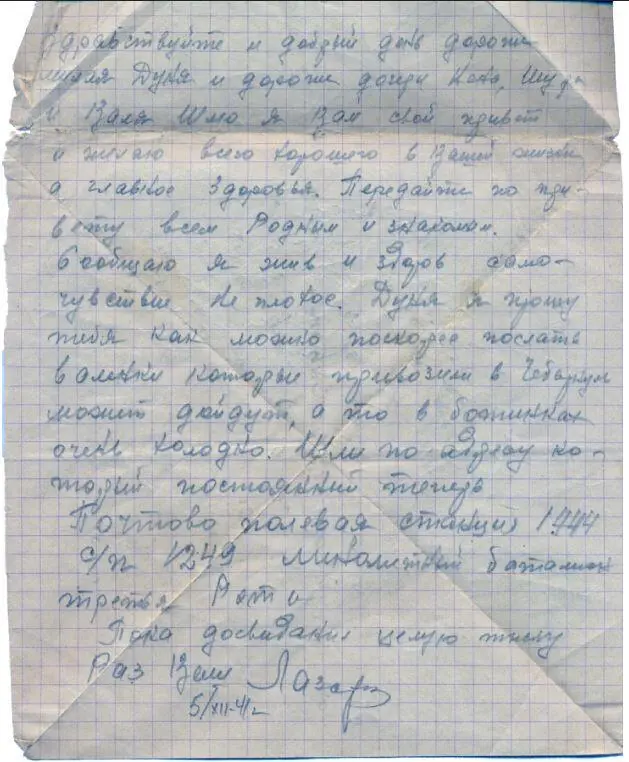 здравствуйте и добрый день дорогая
милая Дуня и дорогие дочери Нена, Шура
и Валя Шлю я Вам свой привет
и желаю всего хорошего в Вашей жизни
а главное здоровья. Передайте по при-
вету всем Родным и знакомым.
Сообщаю я жив и здоров само-
чувствие не плохое. Дуня я прошу
тебя как можно поскорее послать
валенки которые привозили в Чебаркуль
может дойдут, а то в ботинках
очень холодно. Шли по адресу ко-
торый постоянный теперь
Почтово полевая станция 1444
с/п 1249 минометный баталион
третья Рота
Пока досвидания целую тысячу
Раз Всем Лазарь
5/XII-41г